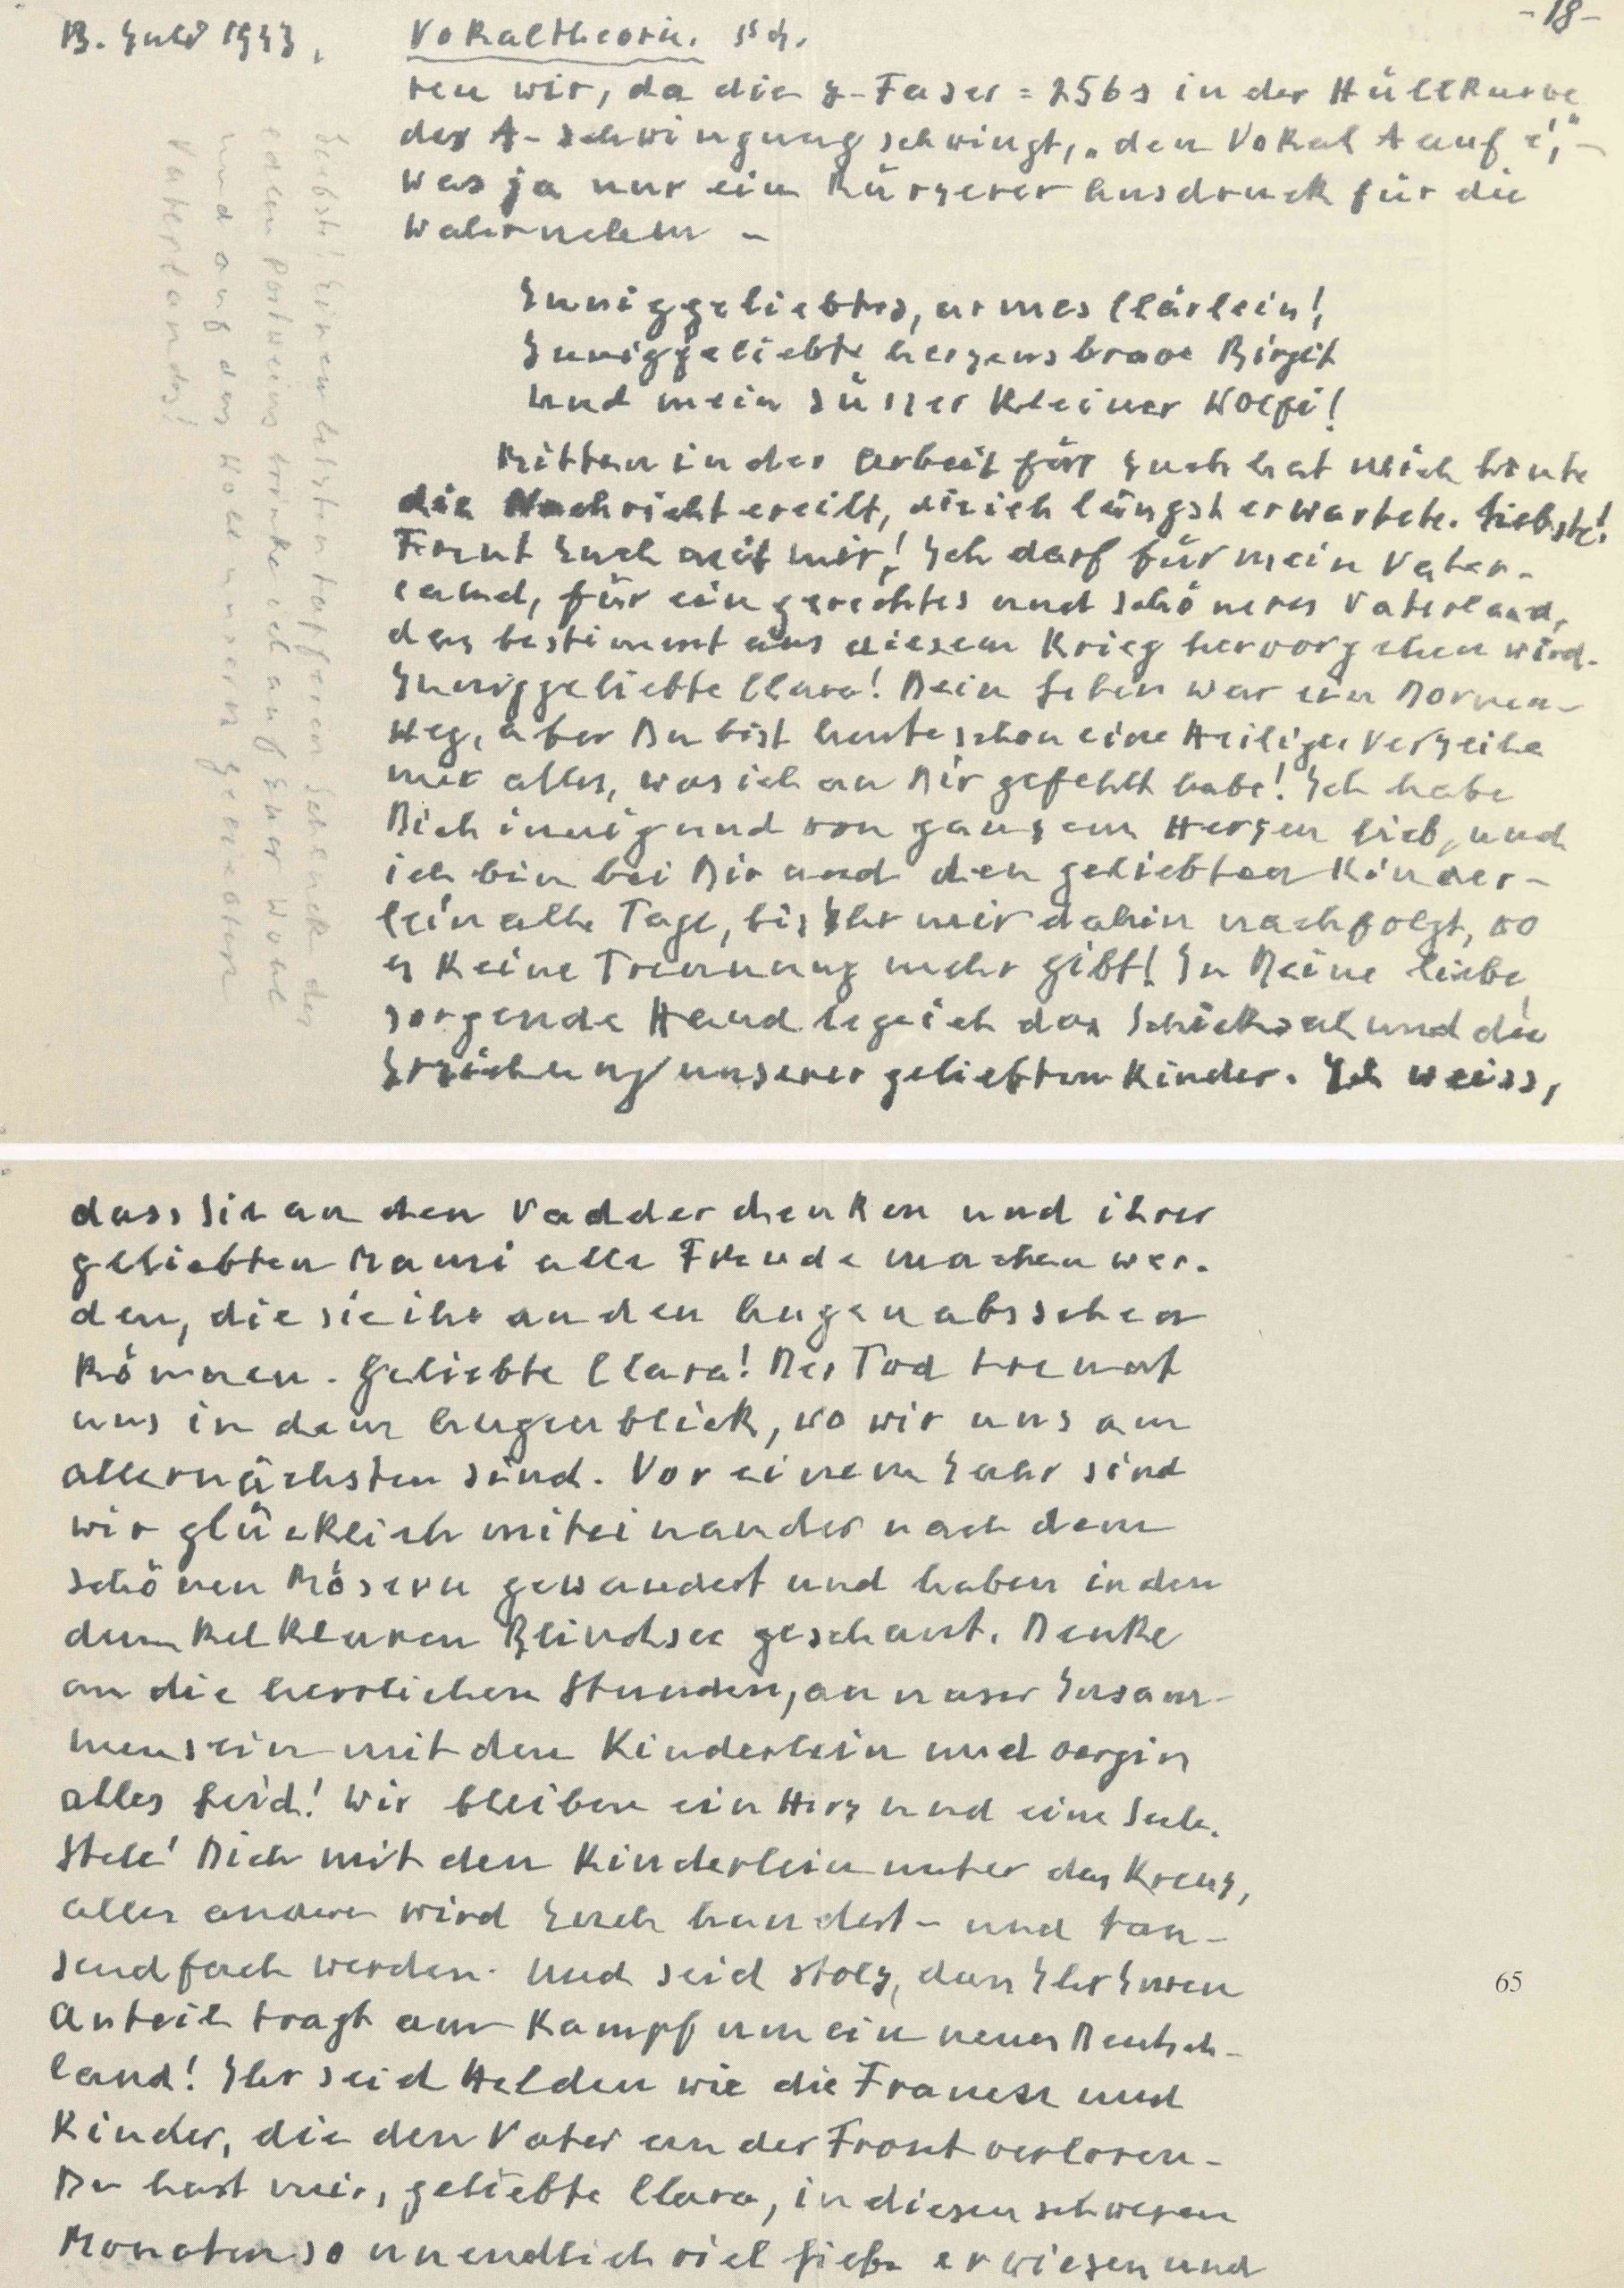 13. Juli 1943,
Vokaltheorie.
-18-
ren wir, da die z-Faser = 256 s in der Hüllkurve
der A-Schwingung schwingt, „den Vokal A auf c',"-
was ja nur ein kürzerer Ausdruck für die
Wahrnehm -
Inniggeliebtes, armes Clärlein!
Inniggeliebte herzensbrave Birgit
Und mein süsser kleiner Wolfi!
Mitten in der Arbeit für Euch hat mich heute
die Nachricht ereilt, die ich längst erwartete. Liebste!
Freut Euch mit mir! Ich darf für mein Vater-
land, für ein gerechtes und schöneres Vaterland,
das bestimmt aus diesem Krieg hervorgehen wird.
Inniggeliebte Clara! Dein Leben war ein Dornen-
weg, aber Du bist heute schon eine Heilige. Verzeihe
mir alles, was ich an Dir gefehlt habe! Ich habe
Dich innig und von ganzem Herzen lieb, und
ich bin bei Dir und den geliebten Kinder-
lein alle Tage, bis Ihr mir dahin nachfolgt, wo
es keine Trennung mehr gibt! In Deine liebe,
sorgende Hand lege ich das Schicksal und die
Erziehung unserer geliebten Kinder. Ich weiss,
Liebste! Einen letzten tapferen Schluck des
edlen Portweins trinke ich auf Euer Wohl
und auf das Wohl unsern geliebten
Vaterlands!
dass Sie an den Vadder denken und ihrer
geliebten Mami alle Freude machen wer-
den, die sie ihr an den Augen absehen
können. Geliebte Clara! Der Tod trennt
uns in dem Augenblick, wo wir uns am
allernächsten sind. Vor einem Jahr sind
wir glücklich miteinander nach dem
schönen Mösern gewandert und haben in den
dunkelklaren Blindsee geschaut. Denke
an die herrlichen Stunden, an unser Zusam-
mensein mit den Kinderlein und vergiss
alles Leid! Wir bleiben ein Herz und eine Seele.
Stell' Dich mit den Kinderlein unter das Kreuz,
alles andere wird Euch hundert- und tau-
sendfach werden. Und seid stolz, dass Ihr Euren
Anteil tragt am Kampf um ein neues Deutsch-
land! Ihr seid Helden wie die Frauen und
Kinder, die den Vater an der Front verloren-
Du hast mir, geliebte Clara, in diesen schweren
Monaten so unendlich viel Liebe erwiesen und
65